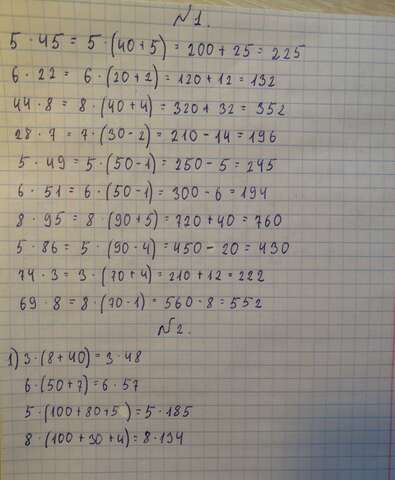 №1.
5 · 45 = 5 · (40 + 5) = 200 + 25 = 225
6 · 22 = 6 · (20 + 2) = 120 + 12 = 132
44 · 8 = 8 · (40 + 4) = 320 + 32 = 352
28 · 7 = 7 · (30 - 2) = 210 - 14 = 196
5 · 49 = 5 · (50 - 1) = 250 - 5 = 245
6 · 51 = 6 · (50 - 1) = 300 - 6 = 194
8 · 95 = 8 · (90 + 5) = 720 + 40 = 760
5 · 86 = 5 · (90 - 4) = 450 - 20 = 430
74 · 3 = 3 · (70 + 4) = 210 + 12 = 222
69 · 8 = 8 · (70 - 1) = 560 - 8 = 552
№2.
1) 3 · (8 + 40) = 3 · 48
6 · (50 + 7) = 6 · 57
5 · (100 + 80 + 5) = 5 · 185
8 · (100 + 30 + 4) = 8 · 134